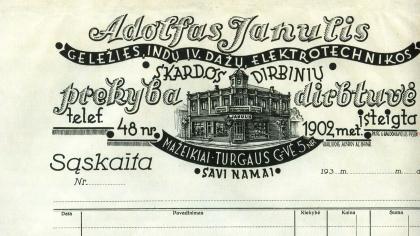 Adolfas Janulis
GELEŽIES, INDŲ IV. DAŽŲ, ELEKTROTECHNIKOS
SKARDOS DIRBINIŲ
prekyba dirbtuvė
telef. 48 nr. įsteigta 1902 met.
JANULIS
MAŽEIKIAI-TURGAUS G-VĖ 5 NR
SAVI NAMAI
Sąskaita
Nr.
193 m. m.
Data Pavadinimas Kiekybė Kaina Suma